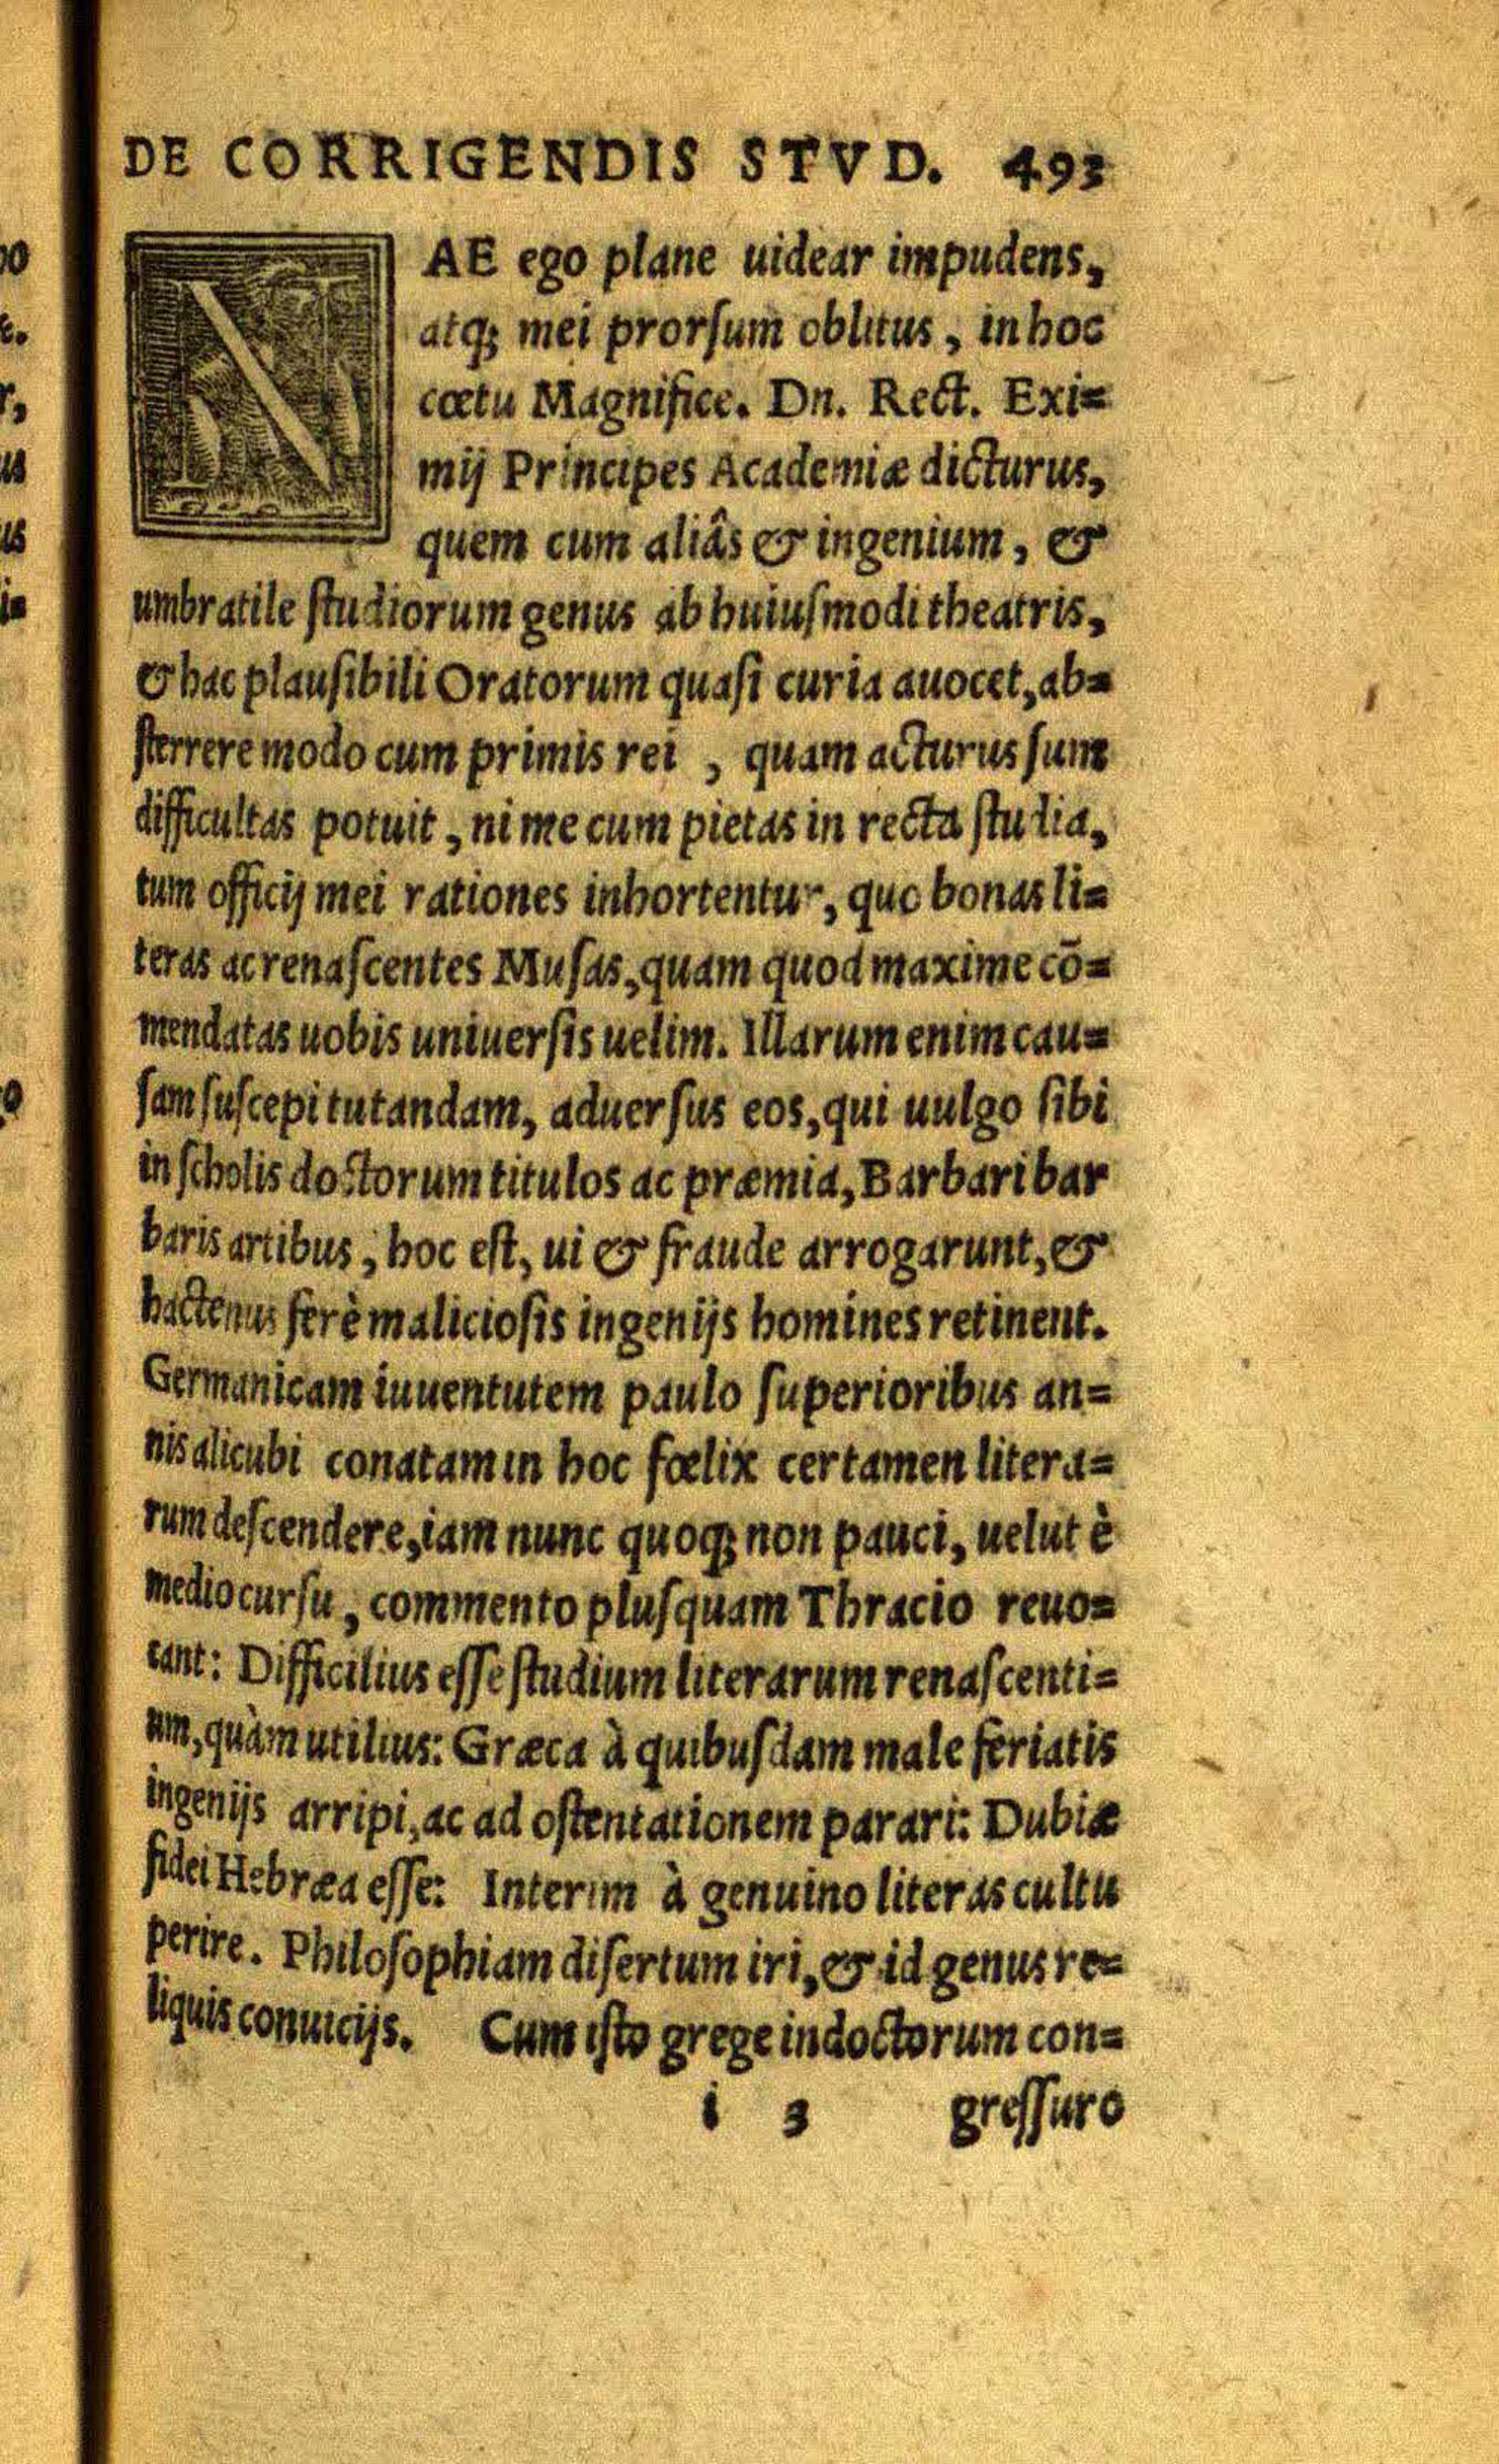 DE CORRIGENDIS STVD. 493
NAE ego plane uidear impudens,
atq; mei prorſum oblitus, in hoc
cœtu Magnifice. Dn. Rect. Exi=
mij Principes Academiæ dicturus,
quem cum aliâs & ingenium, &
umbratile ſtudiorum genus ab huiuſmodi theatris,
& hac plauſibili Oratorum quaſi curia auocet, ab=
ſterrere modo cum primis rei , quam acturus ſum
difficultas potuit, ni me cum pietas in recta ſtudia,
tum officij mei rationes inhortentur, quo bonas li=
teras ac renaſcentes Muſas, quam quod maxime cō=
mendatas uobis uniuerſis uelim. Illarum enim cau=
ſam ſuſcepi tutandam, aduerſus eos, qui uulgo ſibi
in ſcholis doctorum titulos ac præmia, Barbari bar
baris artibus, hoc eſt, ui & fraude arrogarunt, &
hactenus ferè malicioſis ingenijs homines retinent.
Germanicam iuuentutem paulo ſuperioribus an=
nis alicubi conatam in hoc fœlix certamen litera=
rum deſcendere, iam nunc quoq; non pauci, uelut è
medio curſu, commento pluſquam Thracio reuo=
cant: Difficilius eſſe ſtudium literarum renaſcenti=
um, quàm utilius: Græca à quibuſdam male feriatis
ingenijs arripi, ac ad oſtentationem parari: Dubiæ
fidei Hebræa eſſe: Interim à genuino literas cultu
perire. Philoſophiam diſertum iri, & id genus re=
liquis conuicijs. Cum iſto grege indoctorum con=
i 3 greſſuro